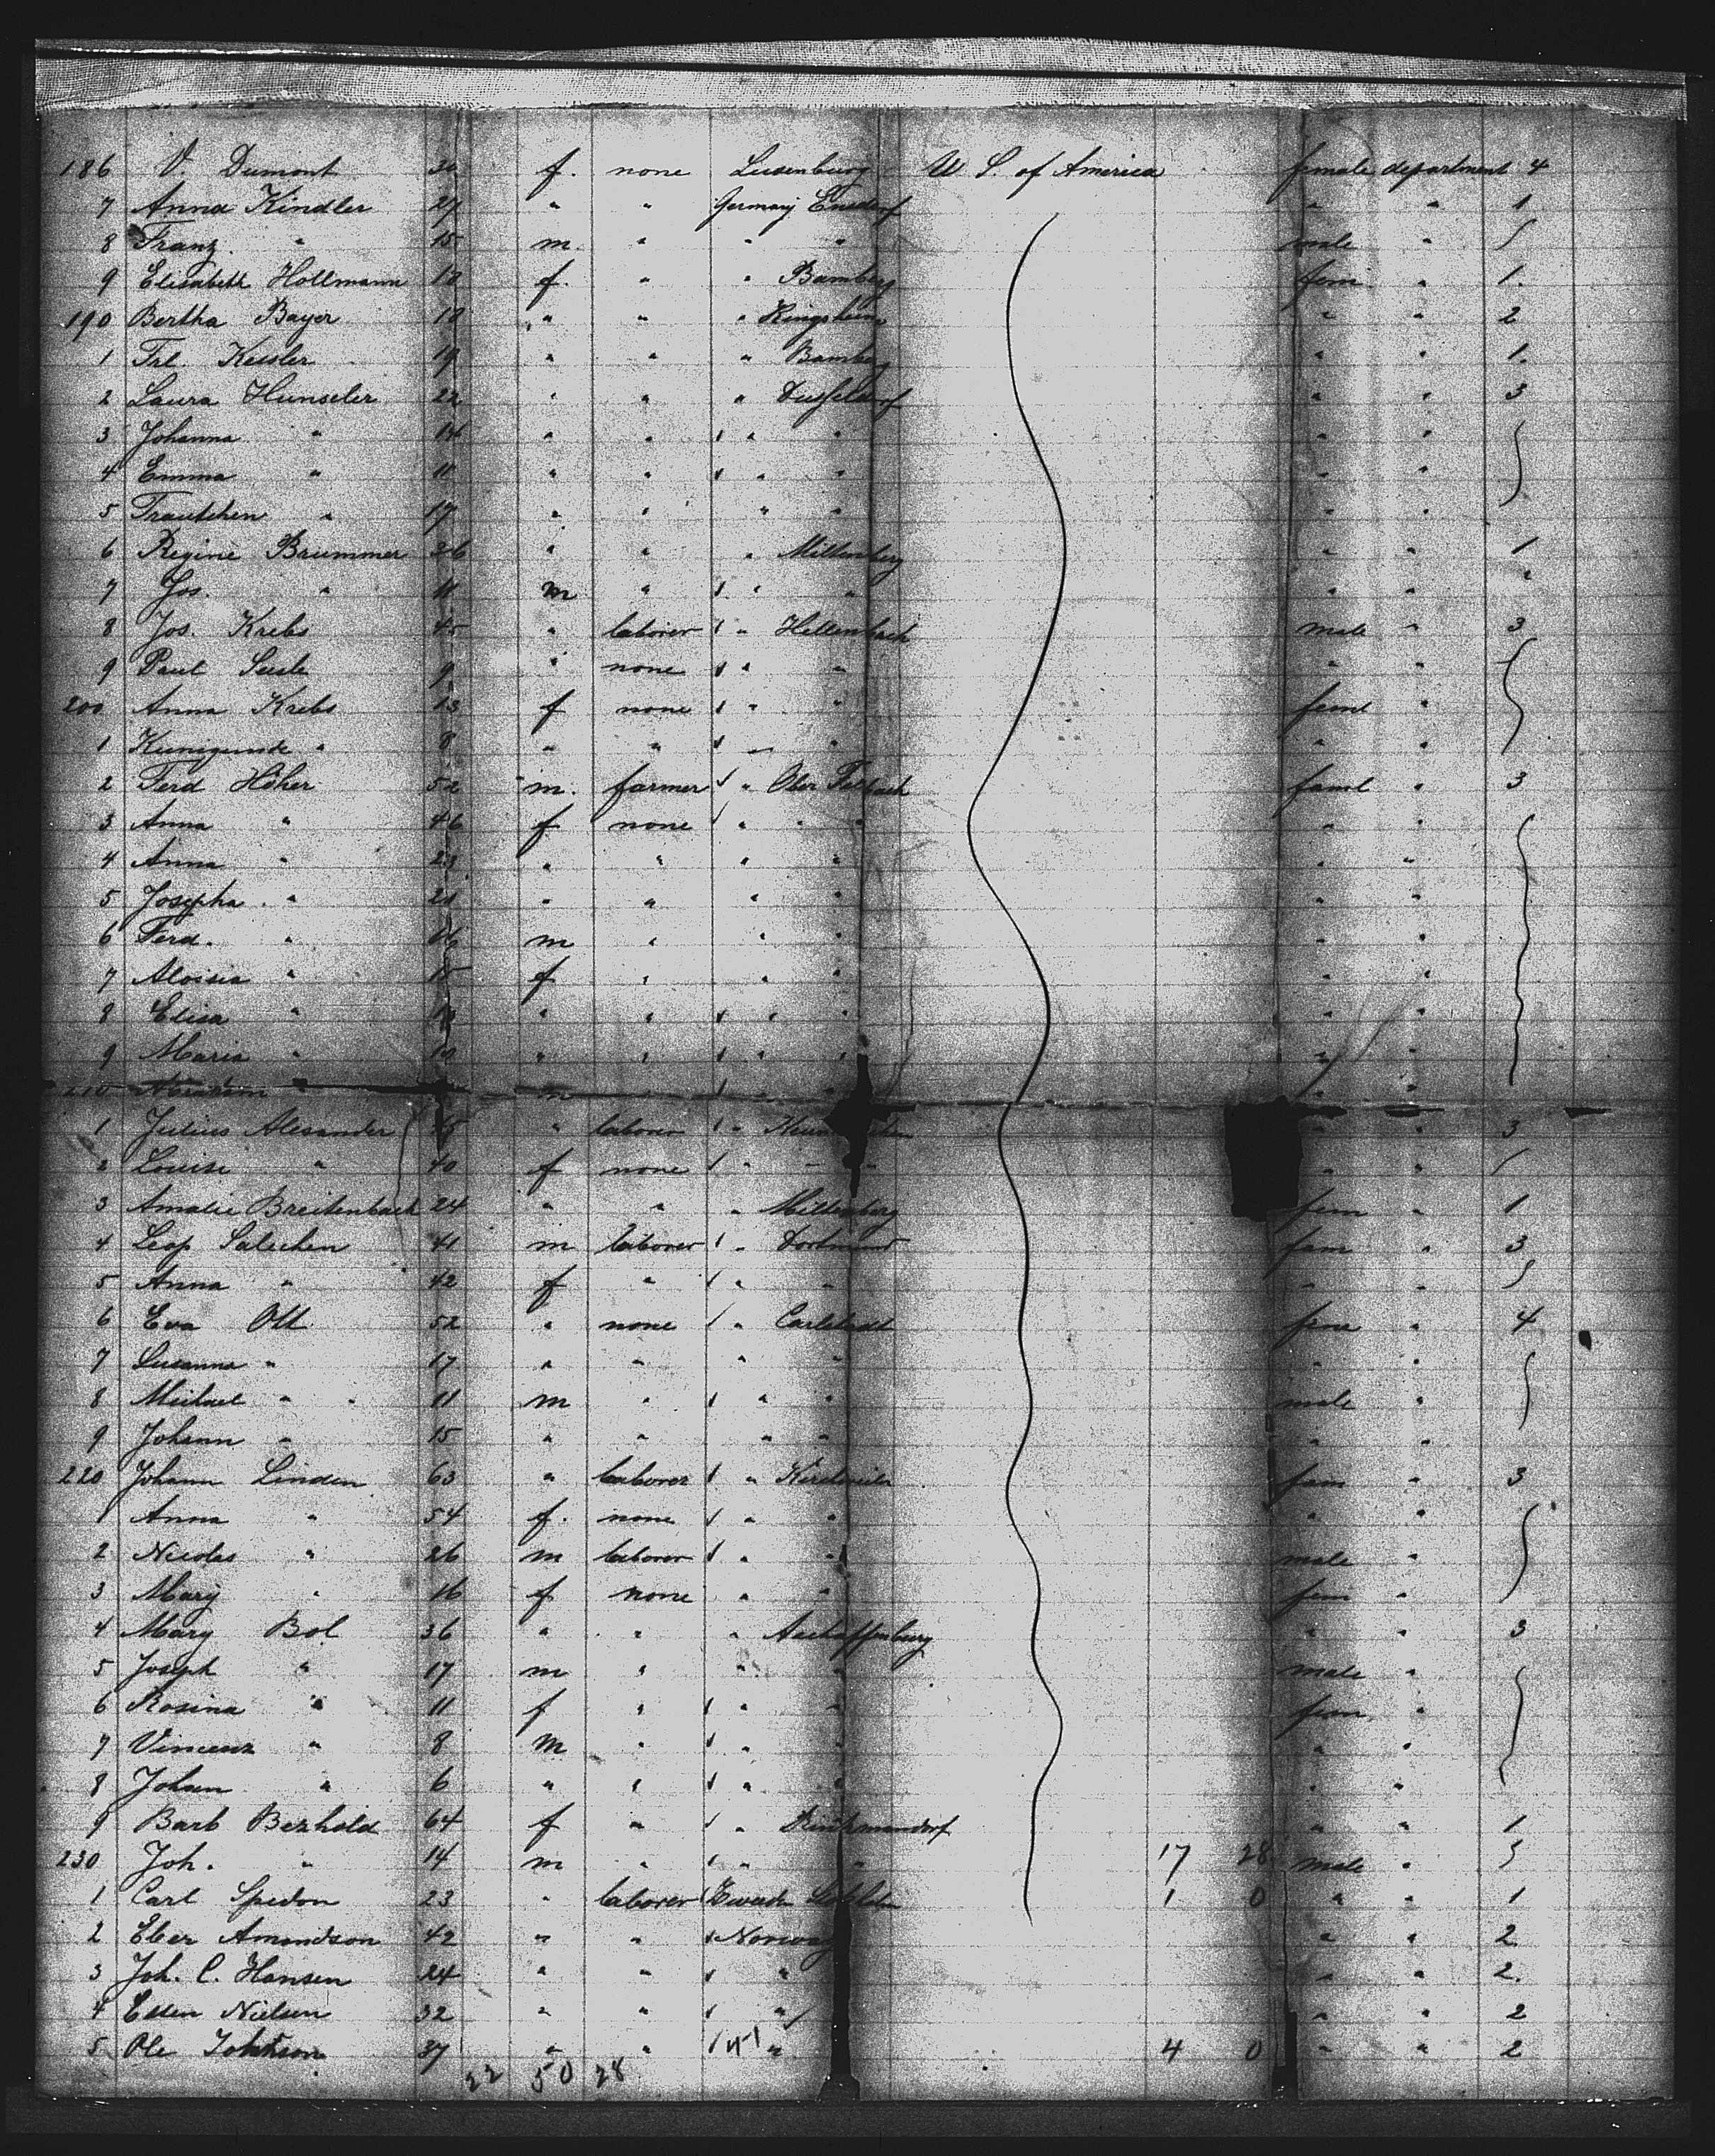 186 V. Dumont 30 f. none Luxenburg U S. of America female department 4
7 Anna Kindler 27 " " Germany Ensdorf " " 1
8 Franz " 15 m. " " " male "
9 Elisabeth Hollmann 18 f. " " Bamberg fem " 1.
190 Bertha Bayer 18 " " " Kingsheim " " 2
1 Frl. Kessler 19 " " " Bamberg " " 1.
2 Laura Hunseler 22 " " " Dusseldorf " " 3
3 Johanna " 14 " " " " " "
4 Emma " 11 " " " " " "
5 Trautchen " 17 " " " " " "
6 Regine Brummer 36 " " " Miltenberg " " 1
7 Jos. " 11 m " " " " " "
8 Jos. Krebs 45 " laborer " Hellenbach male " 3
9 Paul 9 " none " " " "
200 Anna Krebs 13 f none " " feml "
1 Kunigunde " 8 " " " " " "
2 Ferd Höher 52 m. farmer " Ober faml " 3
3 Anna " 46 f none " " " "
4 Anna " 23 " " " " " "
5 Josepha " 21 " " " " " "
6 Ferd. " 16 m " " " " "
7 Aloisia " 15 f " " " " "
8 Elisa " " " " " " "
9 Maria " 10 " " " " " "
210 " m " " " "
1 Julius Alexander 45 " laborer " " " 3
2 Louise " 40 f none " " " "
3 Amalie Breitenbach 24 " " " Miltenberg fem " 1
4 Leop Salechen 41 m laborer " Dortmund fam " 3
5 Anna " 42 f " " " " "
6 Eva Ott 52 " none " Carlstadt fem " 4
7 Susanna " 17 " " " " " "
8 Michael " 11 m " " " male "
9 Johann " 15 " " " " " "
220 Johann Linden 63 " laborer " Kirchweiler fam " 3
1 Anna " 54 f. none " " " "
2 Nicolas " 26 m laborer " " male "
3 Mary " 16 f none " " fem "
4 Mary Bol 36 " " " Aschaffenburg " " 3
5 Joseph " 17 m " " " male "
6 Rosina " 11 f " " " fem "
7 Vincenz " 8 m " " " " "
8 Johan " 6 " " " " " "
9 Barb Bezhold 64 f " " " " 1
230 Joh. " 14 m " " " 17 28 male "
1 Carl Spedon 23 " laborer 1 0 " " 1
2 Eber Amondson 42 " " Norway " " 2
3 Joh. C. Hansen 24 " " " " " 2.
4 Esten Nielsen 32 " " " " " 2
5 Ole Johnson 37 " " " 4 0 " " 2
22 50 28